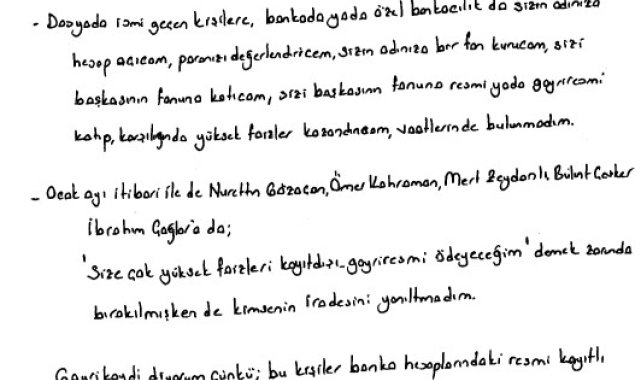 - Dosyada ismi geçen kişilere, bankada yada özel bankacılık da sizin adınıza
hesap açıcam, paranızı değerlendiricem, sizin adınıza bir fon kurucam, sizi
başkasının fonuna katıcam, sizi başkasının fonuna resmi yada gayriresmi
katıp, karşılığında yüksek faizler kazandırıcam, vaatlerinde bulunmadım.
- Ocak ayı itibari ile de Nurettin Gözaçan, Ömer Kahraman, Mert Zeydanlı, Bülent
İbrahim Çağlar'a da;
'Size çok yüksek faizleri kayıtdışı-gayriresmi ödeyeceğim' demek zorunda
bırakılmışken de kimsenin iradesini yanıltmadım.
Gayrikaydi diyorum çünkü; bu kişiler banka hesaplarındaki resmi kayıtlı